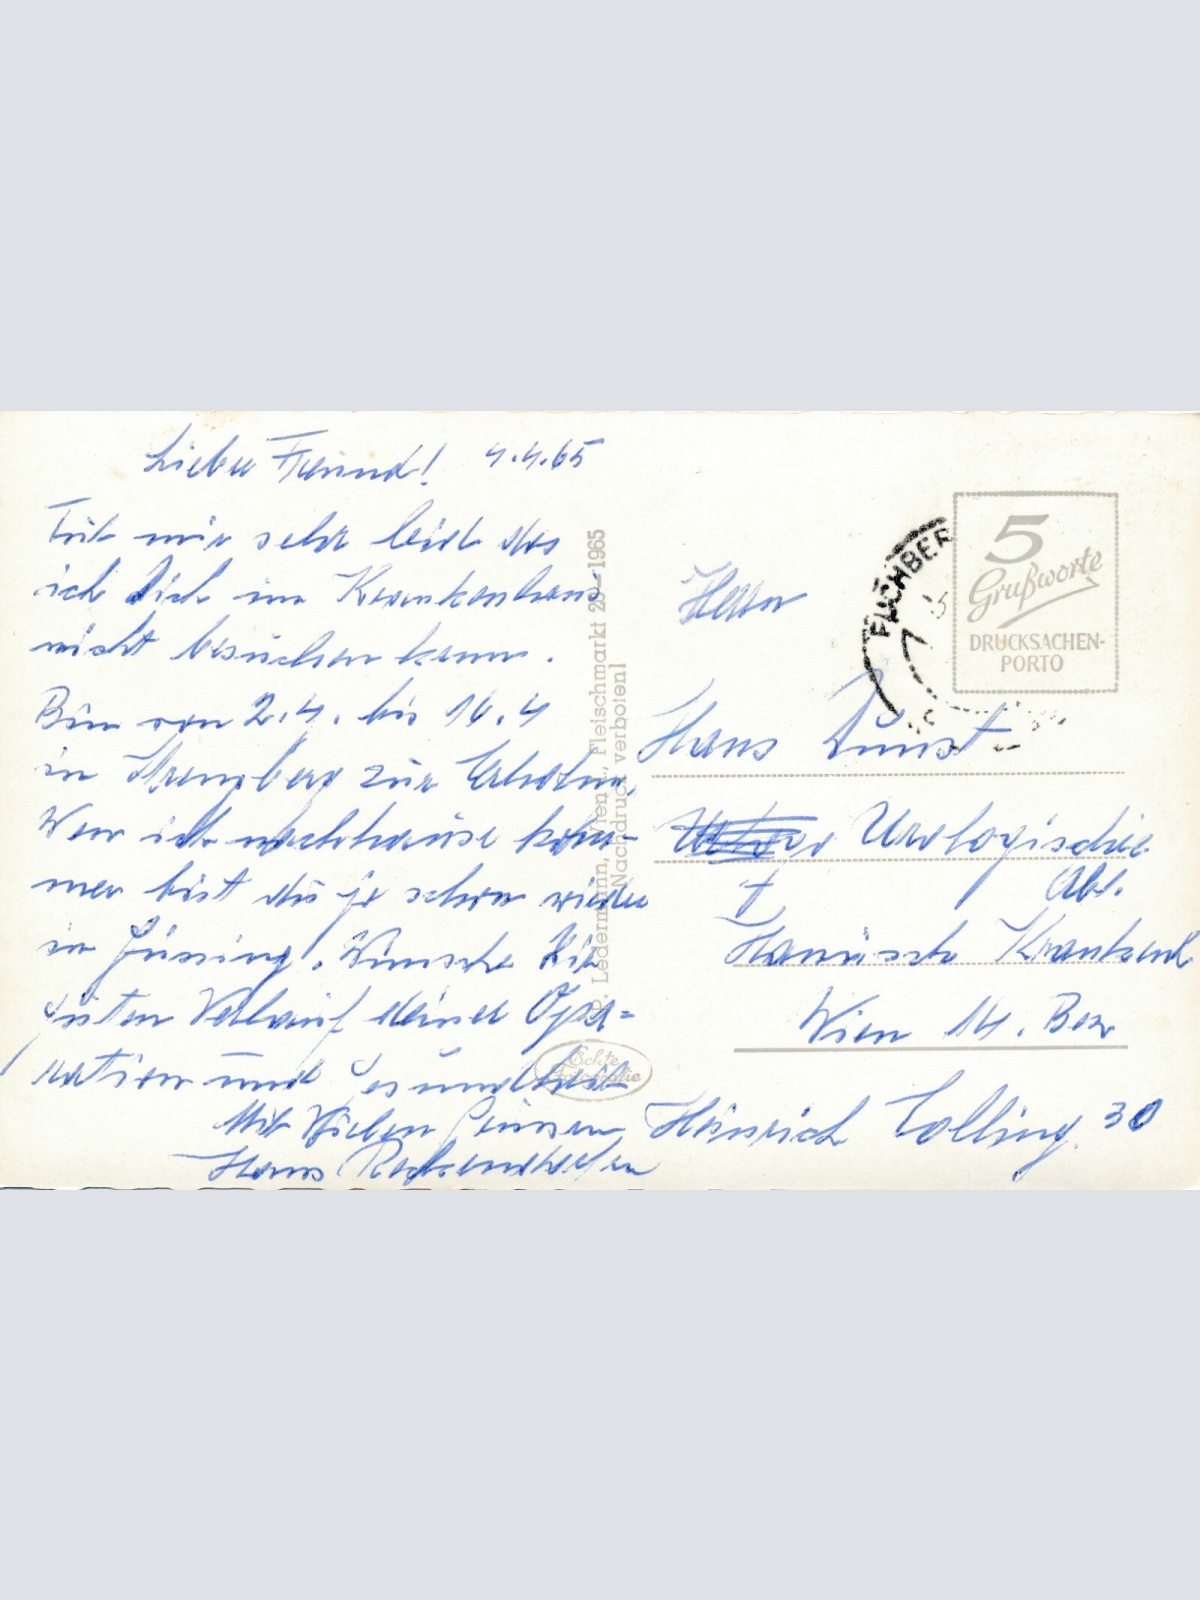 Lieber Freund! 4.4.65
Tut mir sehr leid das
ich Dich im Krankenhaus
nicht besuchen kann.
Bin von 2.4. bis 16.4
in zur Erholun.
Wen ich nachhause kom-
men bist du ja schon wieder
in Wünsche Dir
guten Verlauf deiner Ope-
ration und gesundheit
Mit Vielen Grüssen
Hans
P. Ledermann, Wien I., Fleischmarkt 20 — 1965
Nachdruck verboten!
Echte
Fotografie
FLICHBER
5
Grußworte
DRUCKSACHEN-
PORTO
Herrn
Hans
Urologische
Abt.
Hanusch Krankenh
Wien 14. Bez
Heinrich Colling. 30